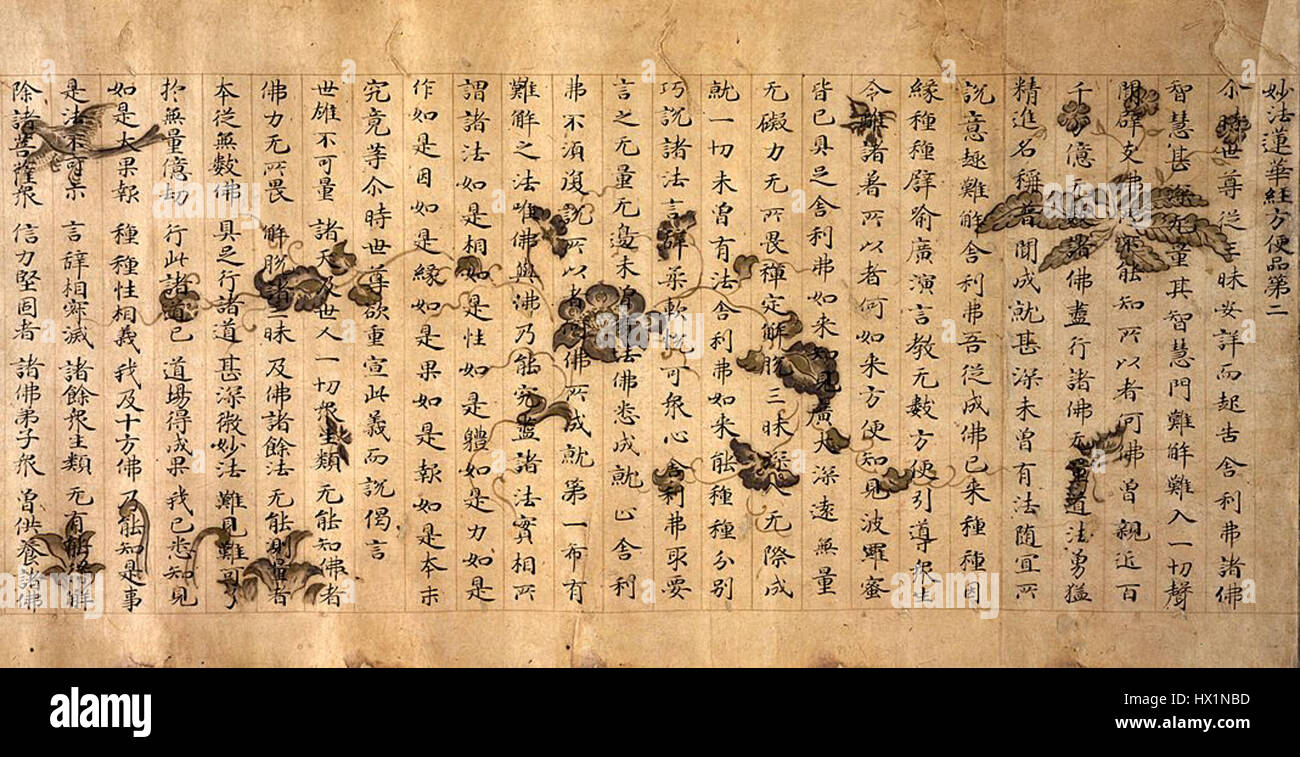 妙法蓮華經方便品第二
尒時世尊從三昧安詳而起告舍利弗諸佛
智慧甚深无量其智慧門難解難入一切聲
聞辟支佛所不能知所以者何佛曾親近百
千万億无數諸佛盡行諸佛无量道法勇猛
精進名稱普聞成就甚深未曾有法随宜所
說意趣難解舍利弗吾從成佛已来種種因
緣種種辟喻廣演言教无數方便引導衆生
令離諸著所以者何如来方便知見波羅蜜
皆已具足舍利弗如来知見廣大深遠無量
无礙力无所畏禪定解脫三昧深入无際成
就一切未曾有法舍利弗如来能種種分別
巧說諸法言辭柔軟悅可衆心舍利弗取要
言之无量无邊未曾有法佛悉成就止舍利
弗不須復說所以者何佛所成就第一希有
難解之法唯佛與佛乃能究盡諸法實相所
謂諸法如是相如是性如是體如是力如是
作如是因如是緣如是果如是報如是本末
究竟等尒時世尊欲重宣此義而說偈言
世雄不可量 諸天及世人 一切衆生類 无能知佛者
佛力无所畏 解脫諸三昧 及佛諸餘法 无能測量者
本從無數佛 具足行諸道 甚深微妙法 難見難可了
於無量億劫 行此諸道已 道場得成果 我已悉知見
如是大果報 種種性相義 我及十方佛 乃能知是事
是法不可示 言辭相寂滅 諸餘衆生類 无有能得解
除諸菩薩衆 信力堅固者 諸佛弟子衆 曾供養諸佛
alamy
alamy stock photo
HX1NBD
www.alamy.com